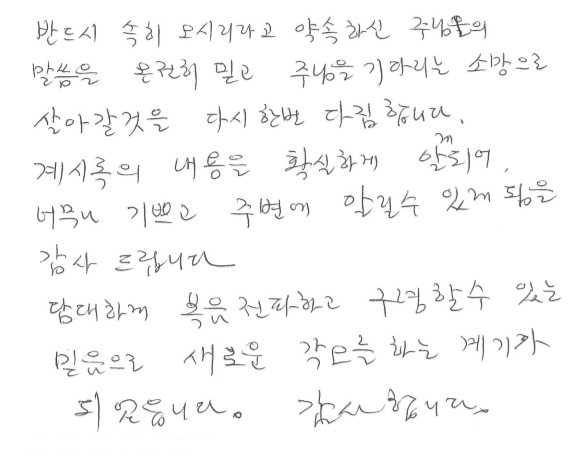 반드시 속히 오시리라고 약속하신 주님의
말씀을 온전히 믿고 주님을 기다리는 소망으로
살아갈것을 다시 한번 다짐합니다.
계시록의 내용을 확실하게 알게되어,
너무나 기쁘고 주변에 알릴수 있게 됨을
감사 드립니다
담대하게 복음전파하고 구령할수 있는
믿음으로 새로운 각오를 하는 계기가
되었습니다. 감사합니다.